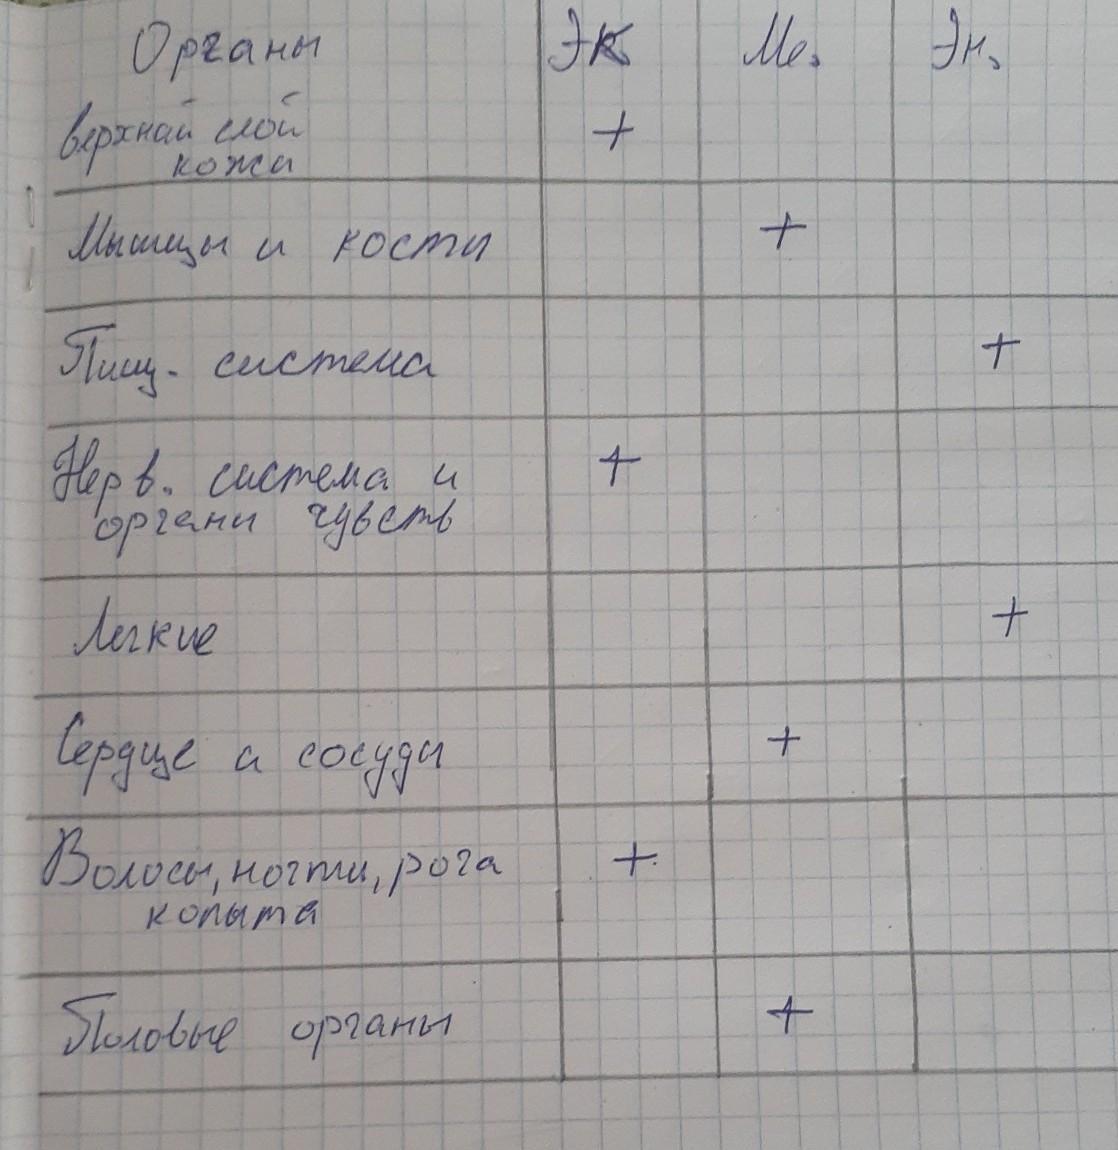 Органы Эк Ме. Эн.
верхнай слой +
кожи
Мышцы и кости +
Пищ. система +
Нерв. система и +
органы чувств
Легкие +
Сердце и сосуды +
Волосы, ногти, рога +
копыта
Половые органы +